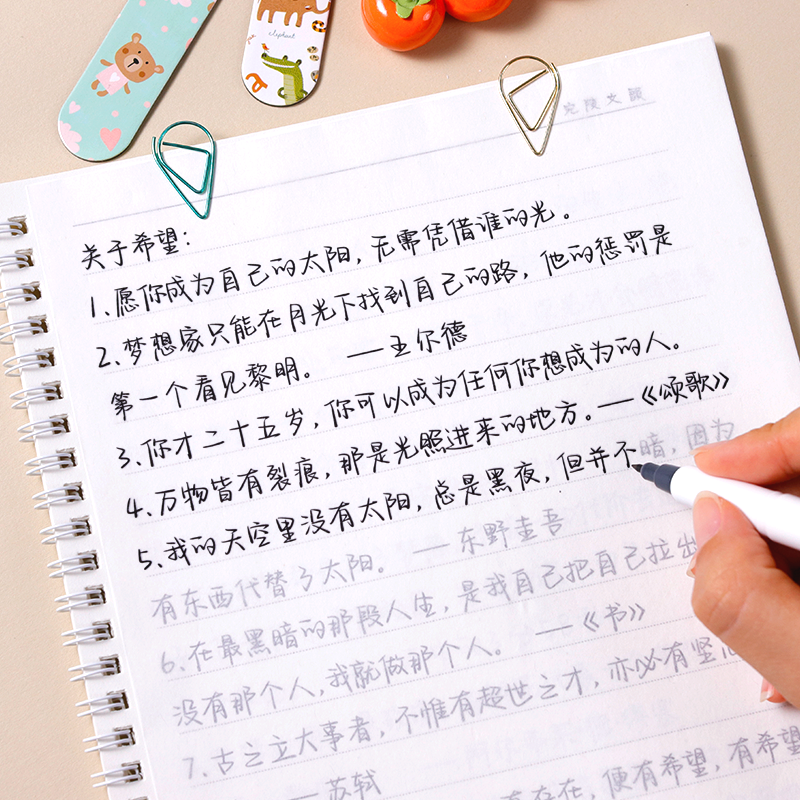 elephant
关于希望:
1.愿你成为自己的太阳,无需凭借谁的光。
2.梦想家只能在月光下找到自己的路,他的惩罚是
第一个看见黎明。 ——王尔德
3.你才二十五岁,你可以成为任何你想成为的人。
4.万物皆有裂痕,那是光照进来的地方。——《颂歌》
5.我的天空里没有太阳,总是黑夜,但并不暗,因为
有东西代替了太阳。 ——东野圭吾
6.在最黑暗的那段人生,是我自己把自己拉出
没有那个人,我就做那个人。 ——《书》
7.古之立大事者,不惟有超世之才,亦必有坚忍
——苏轼
存在,便有希望,有希望